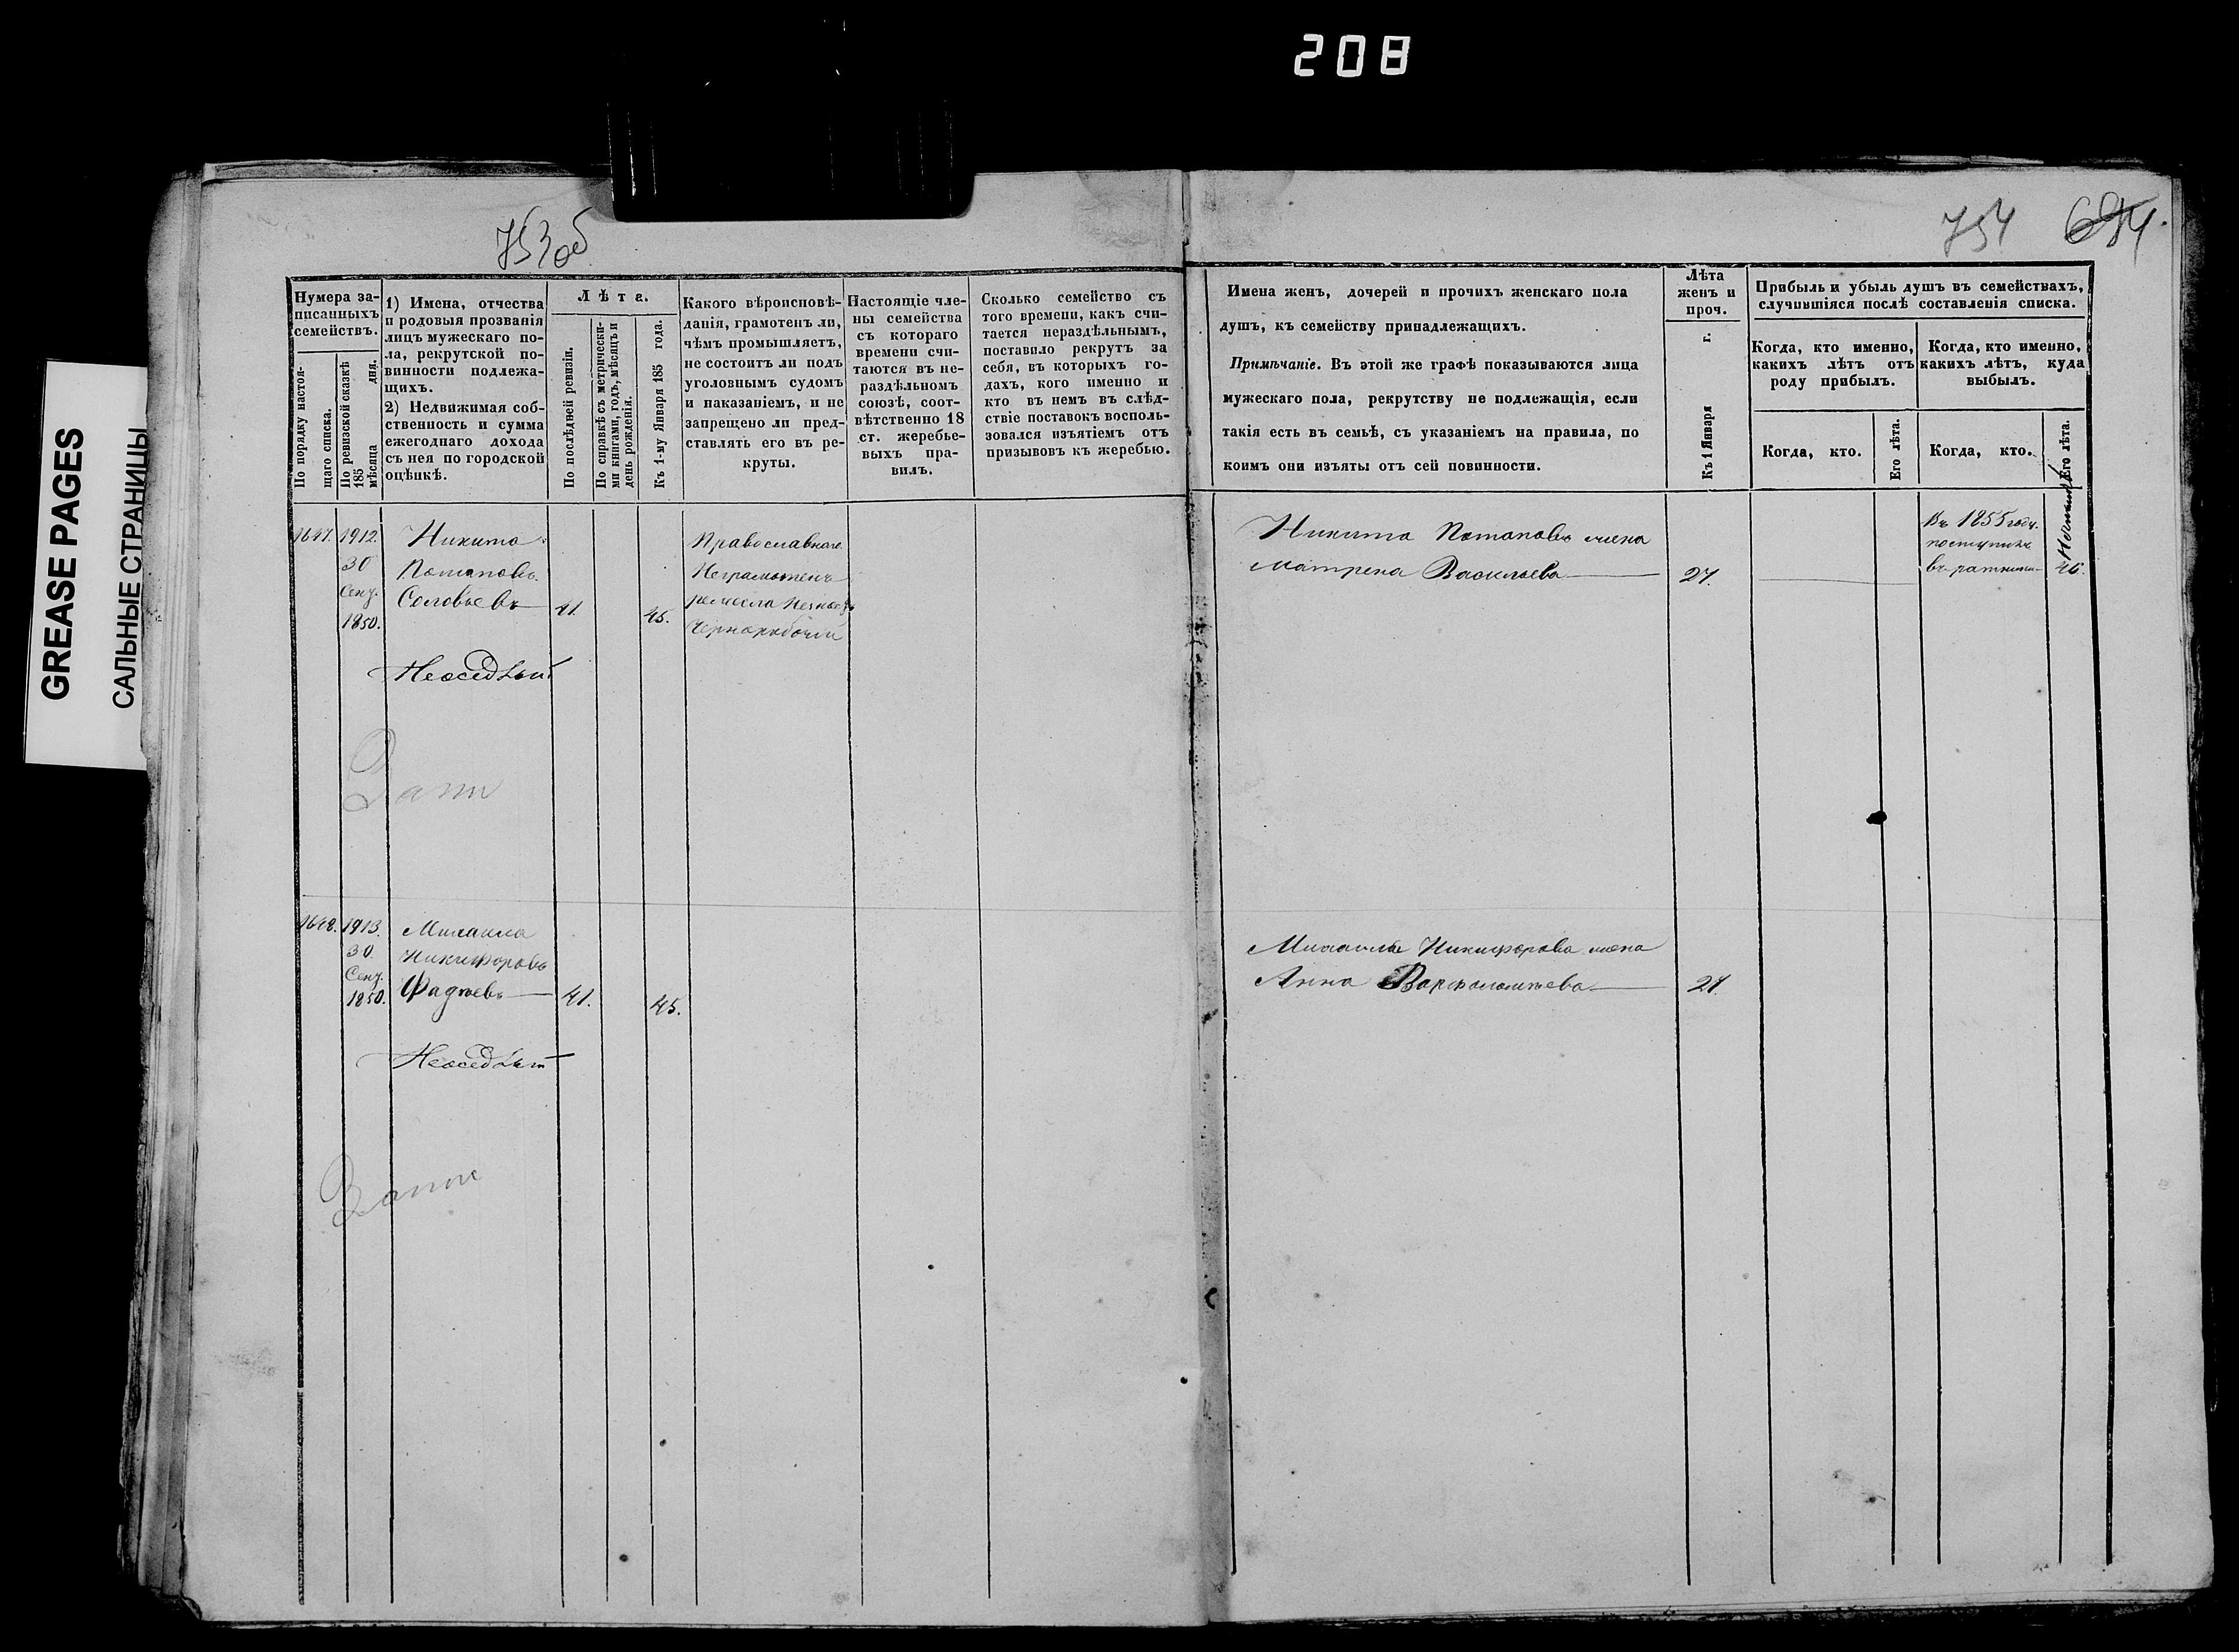 208
GREASE PAGES
САЛЬНЫЕ СТРАНИЦЫ
753об
754 694
Нумера за-
писанныхъ
семействъ.
По порядку настоя-
щаго списка.
По ревизской сказкѣ
185 дня.
мѣсяца
1) Имена, отчества
и родовыя прозванія
лицъ мужескаго по-
ла, рекрутской по-
винности подлежа-
щихъ.
2) Недвижимая соб-
ственность и сумма
ежегоднаго дохода
съ нея по городской
оцѣнкѣ.
Лѣта.
По послѣдней ревизіи.
По справкѣ съ метрически-
ми книгами, годъ, мѣсяцъ и
день рожденія.
Къ 1-му Января 185 года.
Какого вѣроисповѣ-
данія, грамотенъ ли,
чѣмъ промышляетъ,
не состоитъ ли подъ
уголовнымъ судомъ
и наказаніемъ, и не
запрещено ли пред-
ставлять его въ ре-
круты.
Настоящіе чле-
ны семейства
съ котораго
времени счи-
таются въ не-
раздѣльномъ
союзѣ, соот-
вѣтственно 18
ст. жеребье-
выхъ пра-
вилъ.
Сколько семейство съ
того времени, какъ счи-
тается нераздѣльнымъ,
поставило рекрутъ за
себя, въ которыхъ го-
дахъ, кого именно и
кто въ немъ въ слѣд-
ствіе поставокъ восполь-
зовался изъятіемъ отъ
призывовъ къ жеребью.
Имена женъ, дочерей и прочихъ женскаго пола
душъ, къ семейству принадлежащихъ.
Примѣчаніе. Въ этой же графѣ показываются лица
мужескаго пола, рекрутству не подлежащія, если
такія есть въ семьѣ, съ указаніемъ на правила, по
коимъ они изъяты отъ сей повинности.
Лѣта
женъ и
проч.
Къ 1 Января г.
Прибыль и убыль душъ въ семействахъ,
случившіяся послѣ составленія списка.
Когда, кто именно,
какихъ лѣтъ отъ
роду прибылъ.
Когда, кто именно,
какихъ лѣтъ, куда
выбылъ.
Когда, кто.
Его лѣта.
Когда, кто.
Его лѣта.
1647. 1912.
30
Сент.
1850.
Никита
Потаповъ
Соловьевъ 41. 45.
Неоседлый
Православнаго
Неграмотенъ
ремесла
Чернорабочій
Никита Потаповъ жена
Матрена Васильева 27.
Въ 1855 году
поступилъ
въ ратники 46.
1648. 1913.
30.
Сент.
1850.
Михаила
Никифоровъ
Фадѣевъ 41. 45.
Неоседлый
Михаила Никифорова жена
Анна Варфоломѣева 21.